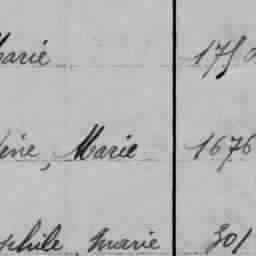 Marie 175
line, Marie 1676
ophile, marie 301